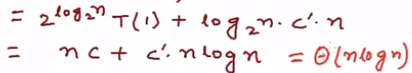 = 2^{log_2 n} T(1) + log_2 n · c' · n
= nc + c' · n log n = Θ(n log n)